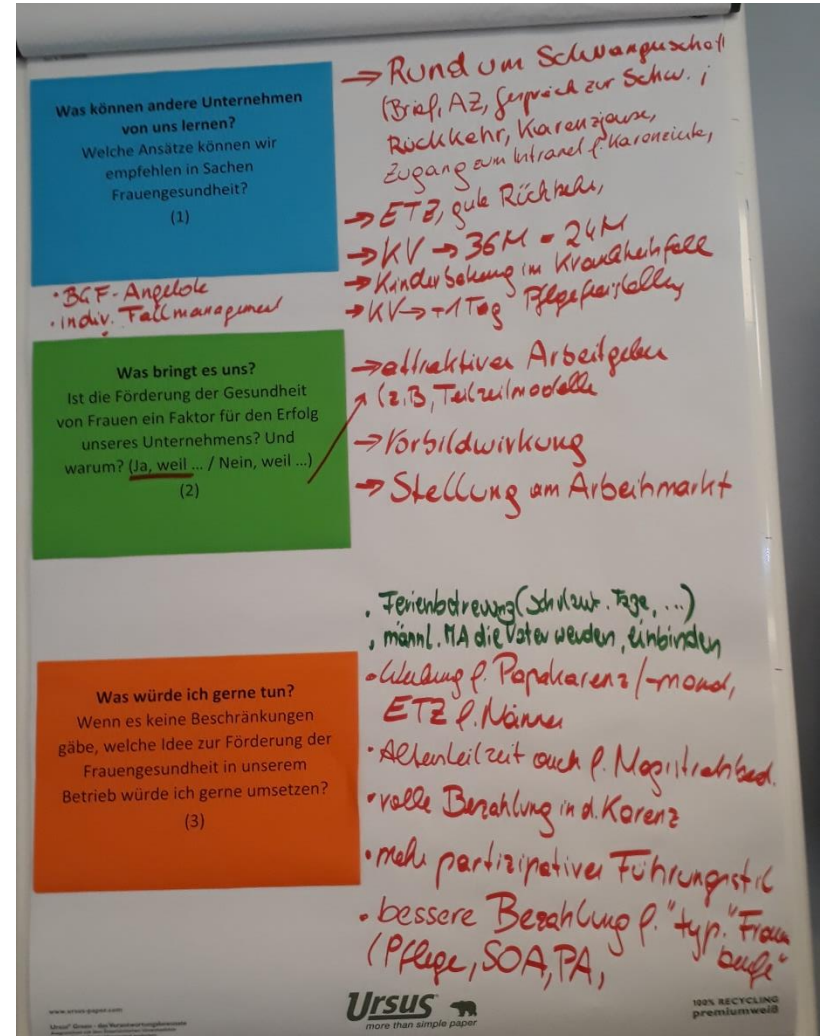 Was können andere Unternehmen
von uns lernen?
Welche Ansätze können wir
empfehlen in Sachen
Frauengesundheit?
(1)
→ Rund um Schwangerschaft
(Brief, AZ, Gespräch zur Schw. ;
Rückkehr, Karenzjause,
Zugang zum Intranet f.
→ ETZ, gute Rückkehr,
→ KV → 36M = 24M
→ Kinderbetreuung im Krankheitsfall
→ KV → +1 Tag Pflegefreistellung
• BGF-Angebote
• indiv. Fallmanagement
Was bringt es uns?
Ist die Förderung der Gesundheit
von Frauen ein Faktor für den Erfolg
unseres Unternehmens? Und
warum? (Ja, weil ... / Nein, weil ...)
(2)
→ attraktiver Arbeitgeber
(z.B, Teilzeitmodelle
→ Vorbildwirkung
→ Stellung am Arbeitsmarkt
• Ferienbetreuung (Schulaut. Tage, ...)
• männl. MA die Väter werden, einbinden
• Werbung f. Papakarenz/-monat,
ETZ f. Männer
• Altersteilzeit auch f. Magistratsbed.
• volle Bezahlung in d. Karenz
• mehr partizipativer Führungsstil
• bessere Bezahlung f. "typ." Frauen
berufe"
(Pflege, SOA, PA,
Was würde ich gerne tun?
Wenn es keine Beschränkungen
gäbe, welche Idee zur Förderung der
Frauengesundheit in unserem
Betrieb würde ich gerne umsetzen?
(3)
www.ursus-paper.com
Ursus
more than simple paper
100% RECYCLING
premiumweiß